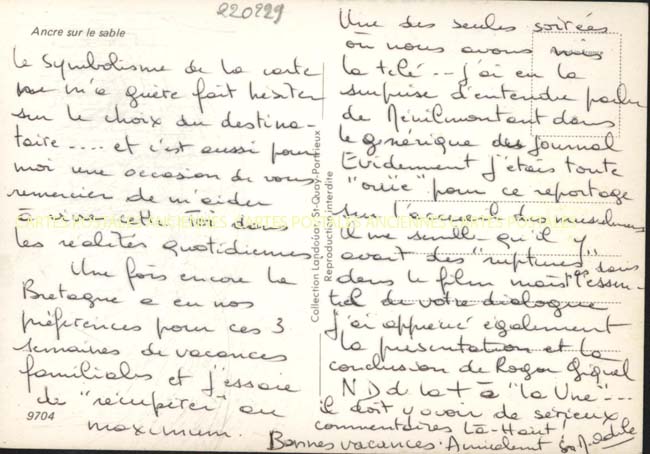 220929
Ancre sur le sable
Le symbolisme de la carte
ne m'a guère fait hésiter
sur le choix du destina-
taire .... et c'est aussi pour
moi une occasion de vous
remercier de m'aider
à vivre cette Foi dans
les réalités quotidiennes
Une fois encore la
Bretagne a eu nos
préférences pour ces 3
semaines de vacances
familiales et j'essaie
de "récupérer" au
maximum.
9704
Collection Landouar, St-Quay-Portrieux
Reproduction interdite
Une des seules soirées
où nous avons mis
la télé -- j'ai eu la
surprise d'entendre parler
de Ménilmontant dans
le générique du Journal
Evidemment j'étais toute
"ouïe" pour ce reportage
sur l'accueil des musulmans
Il me semble qu'il y
avait des "ruptures" sons
dans le film mais l'essen-
tiel de votre dialogue
j'ai apprécié également
la présentation et la
conclusion de Roger Gicquel
N D de la + à "la Une" ---
il doit y avoir de sérieux
commentaires Là-Haut !
Bonnes vacances. Amicalement
CARTES POSTALES ANCIENNES CARTES POSTALES ANCIENNES CARTES POSTALES